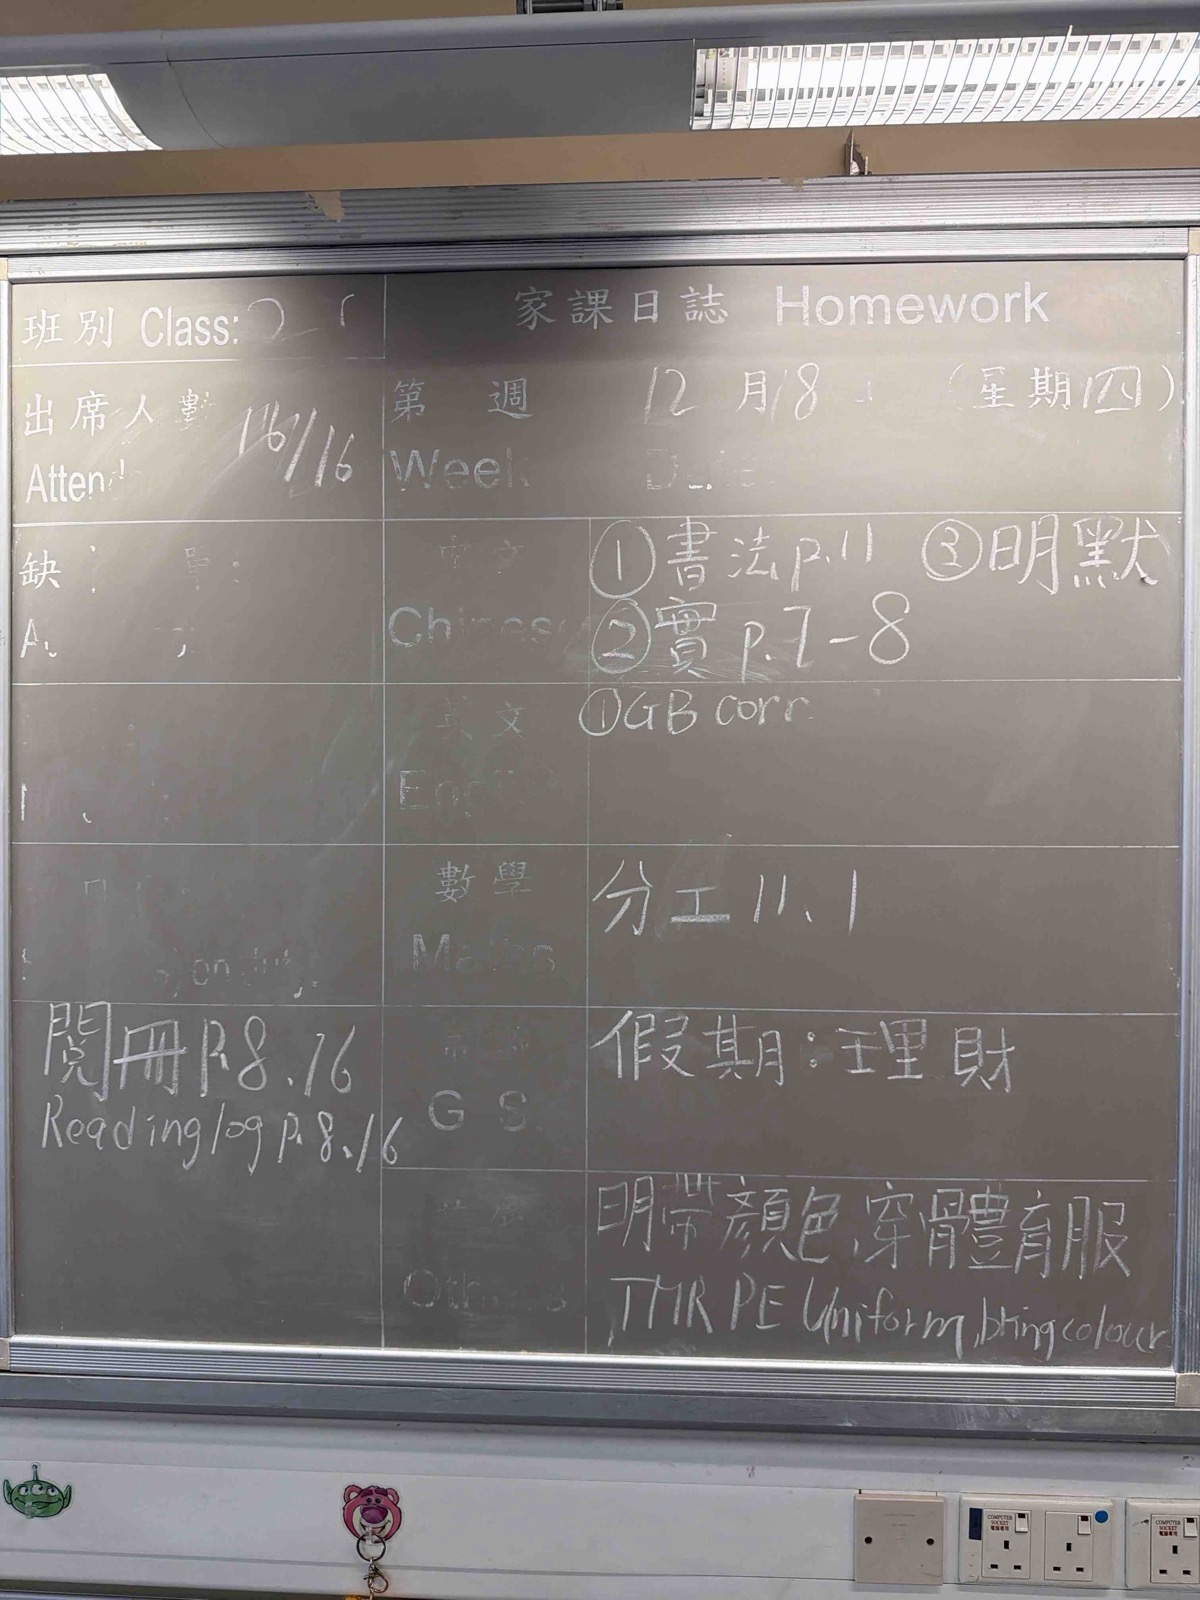 班別 Class:
家課日誌 Homework
出席人數 16/16
第 週 12月18 (星期四)
Week
缺
中文
Chinese
①書法p.11 ③明默
②實p.7-8
英文
English
①GB corr.
數學
Maths
分工11.1
閱冊P.8.16
Reading log p.8.16
G S.
假期:理財
Others
明帶顏色,穿體育服
TMR PE Uniform, bring colour
COMPUTER
SOCKET
電腦專用
COMPUTER
SOCKET
電腦專用